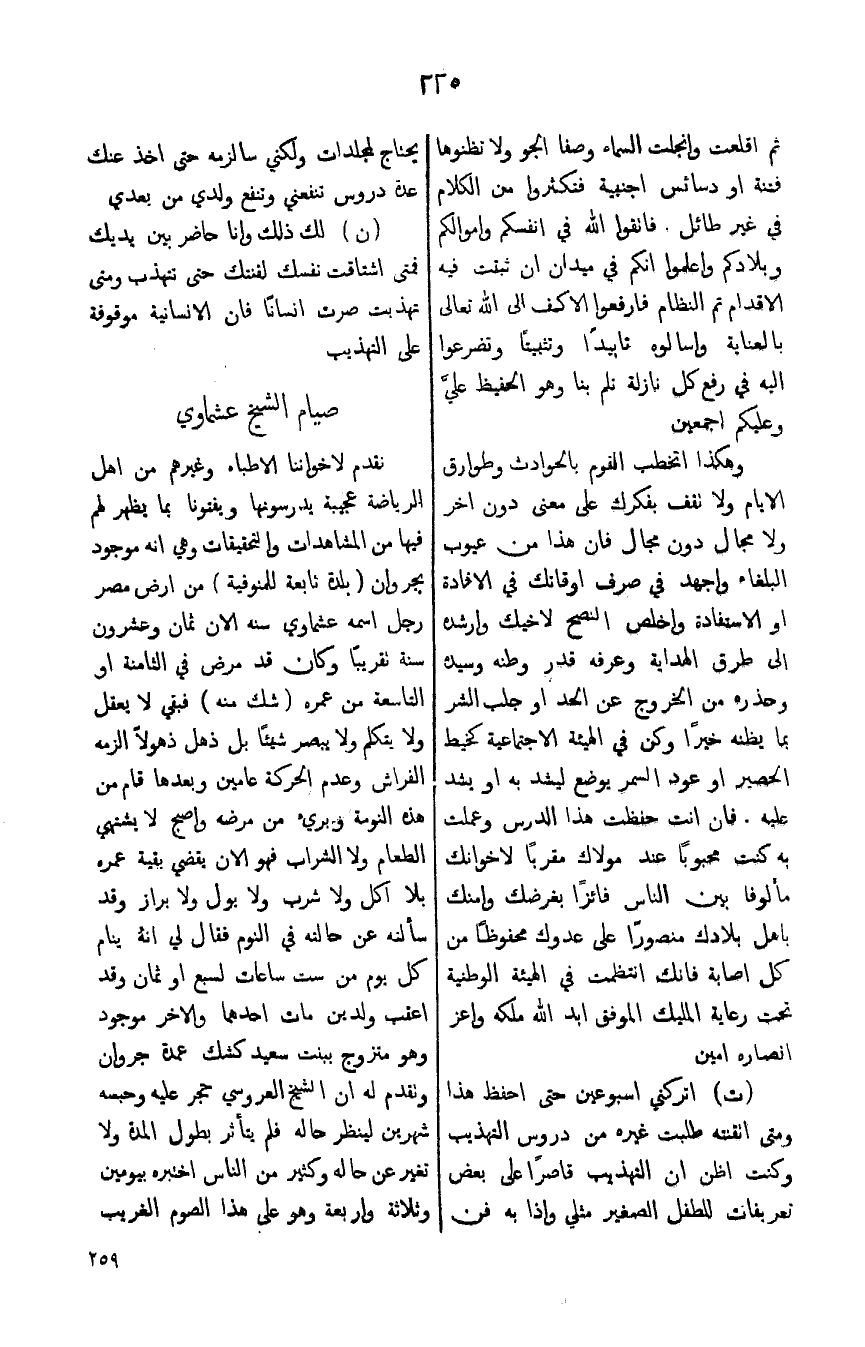 ٢٢٥
ثم اقلعت وانجلت السماء وصفا الجو ولا تظنوها
فتنة او دسائس اجنبية فتكثروا من الكلام
في غير طائل . فاتقوا الله في انفسكم واموالكم
وبلادكم واعلموا انكم في ميدان ان ثبتت فيه
الاقدام تم النظام فارفعوا الاكف الى الله تعالى
بالعناية واسالوه تاييدًا وتثبيتًا وتضرعوا
اليه في رفع كل نازلة تلم بنا وهو الحفيظ عليَّ
وعليكم اجمعين
وهكذا اتخطب القوم بالحوادث وطوارق
الايام ولا تقف بفكرك على معنى دون اخر
ولا مجال دون مجال فان هذا من عيوب
البلغاء واجهد في صرف اوقاتك في الافادة
او الاستفادة واخلص النصح لاخيك وارشده
الى طرق الهداية وعرفه قدر وطنه وسيده
وحذره من الخروج عن الحد او جلب الشر
بما يظنه خيرًا وكن في الهيئة الاجتماعية كخيط
الحصير او عود السمر يوضع ليشد به او يشد
عليه . فان انت حفظت هذا الدرس وعملت
به كنت محبوبًا عند مولاك مقربًا لاخوانك
مألوفا بين الناس فائزًا بغرضك وامنك
باهل بلادك منصورًا على عدوك محفوظًا من
كل اصابة فانك انتظمت في الهيئة الوطنية
تحت رعاية المليك الموفق ايد الله ملكه واعز
انصاره امين
(ت) اتركني اسبوعين حتى احفظ هذا
ومتى اتقنته طلبت غيره من دروس التهذيب
وكنت اظن ان التهذيب قاصرًا على بعض
تعريفات للطفل الصغير مثلي واذا به فن
يحتاج لمجلدات ولكني سالزمه حتى اخذ عنك
عدة دروس تنفعني وتنفع ولدي من بعدي
(ن) لك ذلك وانا حاضر بين يديك
فمتى اشتاقت نفسك لفنتك حتى تتهذب ومتى
تهذبت صرت انسانًا فان الانسانية موقوفة
على التهذيب
صيام الشيخ عشماوي
نقدم لاخواننا الاطباء وغيرهم من اهل
الرياضة عجيبة يدرسونها ويفتونا بما يظهر لهم
فيها من المشاهدات والتحقيقات وهي انه موجود
بجروان (بلدة تابعة للمنوفية) من ارض مصر
رجل اسمه عشماوي سنه الان ثمان وعشرون
سنة تقريبًا وكان قد مرض في الثامنة او
التاسعة من عمره (شك منه) فبقي لا يعقل
ولا يتكلم ولا يبصر شيئًا بل ذهل ذهولاً الزمه
الفراش وعدم الحركة عامين وبعدها قام من
هذه النومة وبريء من مرضه واصبح لا يشتهي
الطعام ولا الشراب فهو الان يقضي بقية عمره
بلا اكل ولا شرب ولا بول ولا براز وقد
سألته عن حالته في النوم فقال لي انهُ ينام
كل يوم من ست ساعات لسبع او ثمان وقد
اعقب ولدين مات احدهما والاخر موجود
وهو متزوج ببنت سعيد كشك عمدة جروان
وتقدم له ان الشيخ العروسي حجر عليه وحبسه
شهرين لينظر حاله فلم يتأثر بطول المدة ولا
تغير عن حاله وكثير من الناس اختبره بيومين
وثلاثة واربعة وهو على هذا الصوم الغريب
٢٥٩